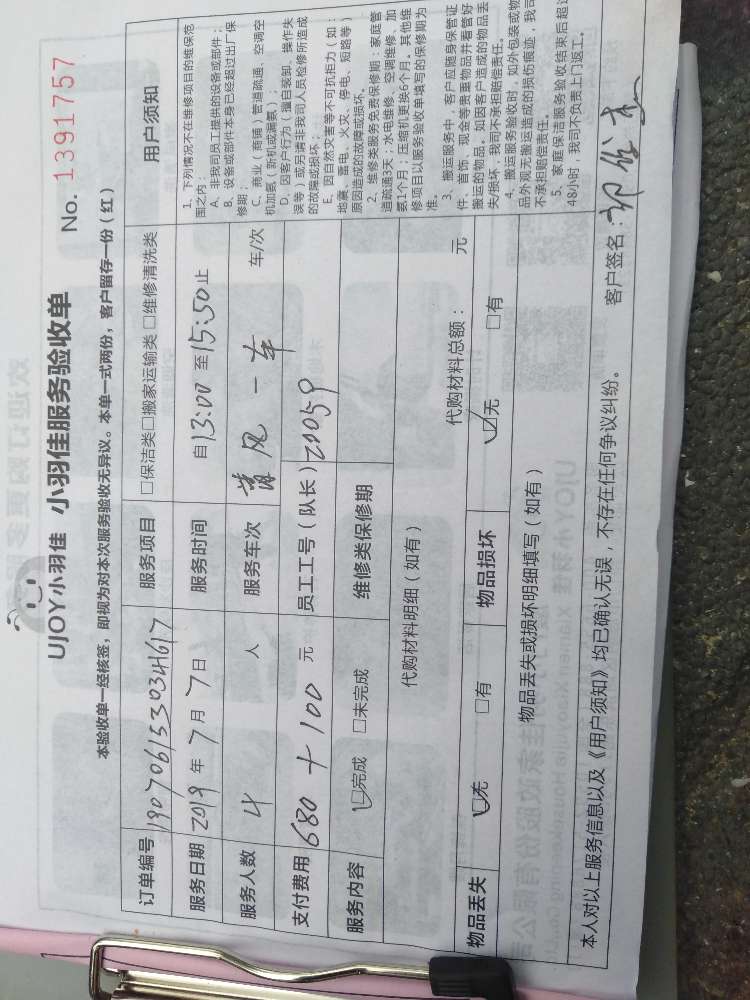 UJOY小羽佳 小羽佳服务验收单
No. 1391757
本验收单一经核签，即视为对本次服务验收无异议。本单一式两份，客户留存一份（红）
订单编号 19070615330341617 服务项目 □保洁类□搬家运输类 □维修清洗类
服务日期 2019 年 7 月 7 日 服务时间 自13:00 至15:50止
服务人数 4 人 服务车次 清风 一车 车/次
支付费用 680 + 100 元 员工工号（队长） 20059
服务内容 ☑完成 □未完成 维修类保修期
代购材料明细（如有） 代购材料总额： 元
物品丢失 ☑无 □有 物品损坏 ☑无 □有
物品丢失或损坏明细填写（如有）
用户须知
1、下列情况不在维修项目的维保范
围之内：
A、非我司员工提供的设备或部件；
B、设备或部件本身已经超过出厂保
修期；
C、商业（商铺）管道疏通、空调空
机加氨（新机或漏氨）；
D、因客户行为（擅自装卸、操作失
误等）或另请非我司人员检修所造成
的故障或损坏；
E、因自然灾害等不可抗拒力（如：
地震、雷电、火灾、停电、短路等）
原因造成的故障或损坏。
2、维修类服务免费保修期：家庭管
道疏通3天；水电维修、空调维修、加
氨1个月；压缩机更换6个月。其他维
修项目以服务验收单填写的保修期为
准。
3、搬运服务中，客户应随身保管证
件、首饰、现金等贵重物品并看管好
搬运的物品。如因客户造成的物品丢
失/损坏，我司不承担赔偿责任。
4、搬运服务验收时，如外包装或物
品外观无搬运造成的损伤痕迹，我司
不承担赔偿责任。
5、家庭保洁服务验收结束后超过
48小时，我司不负责上门返工。
本人对以上服务信息以及《用户须知》均已确认无误，不存在任何争议纠纷。 客户签名：